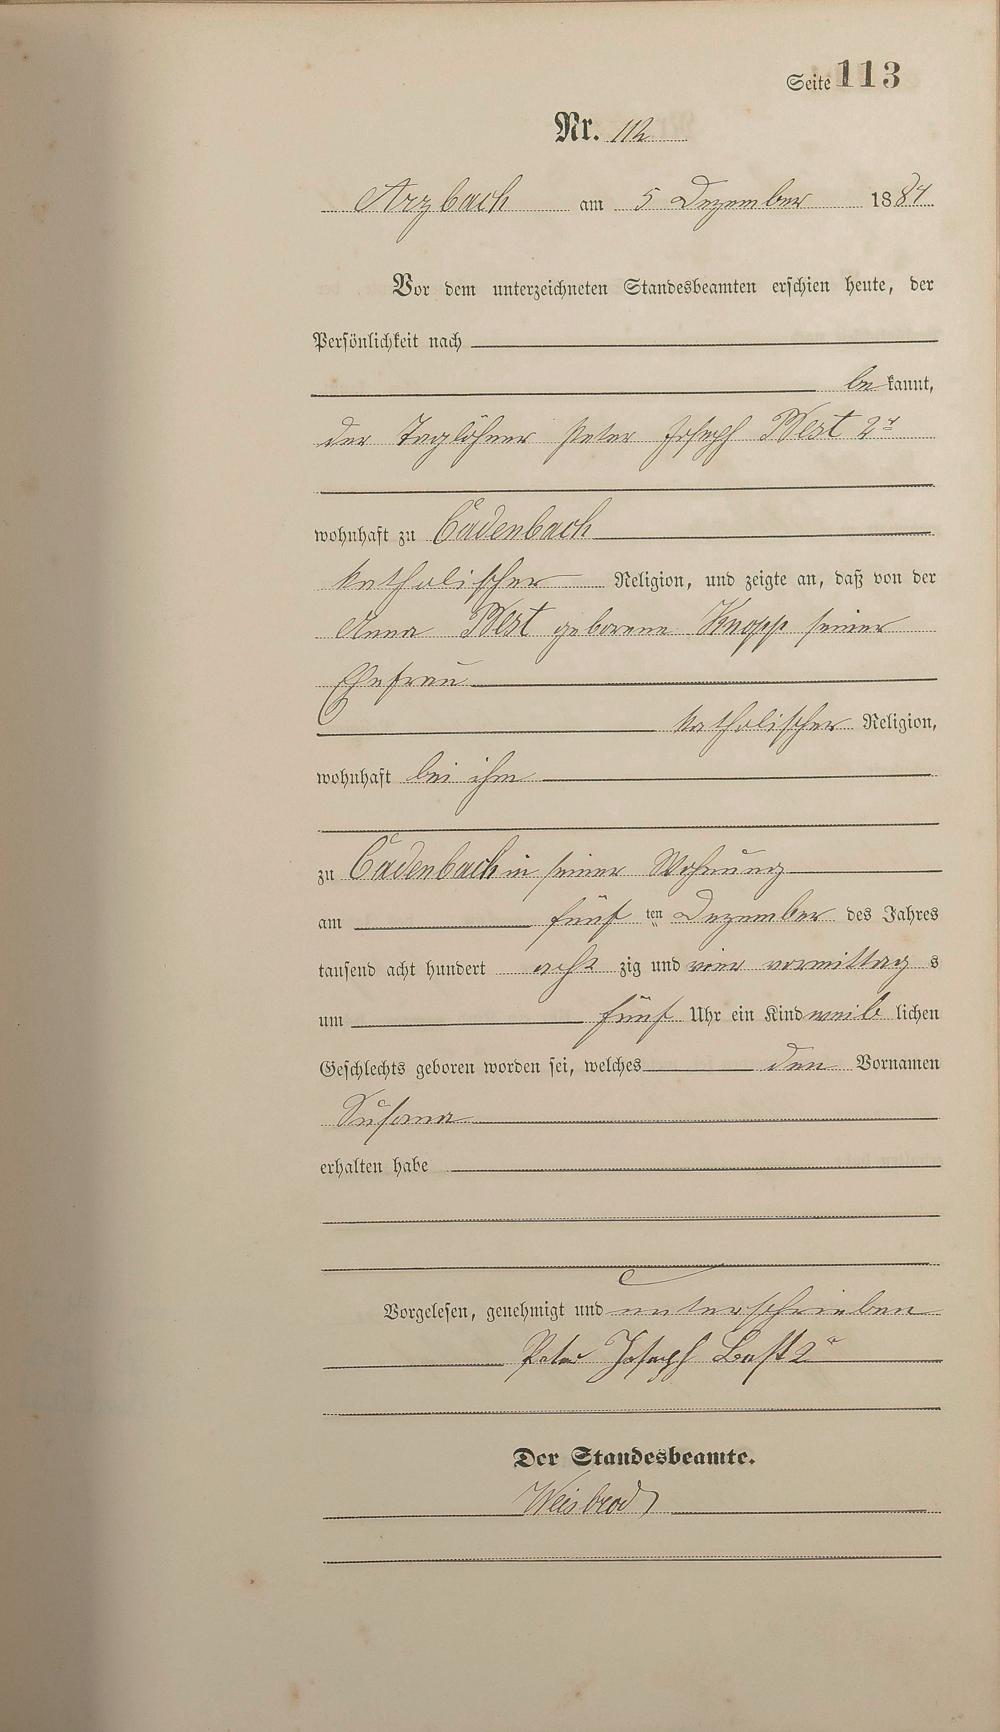 Seite 113
Nr. 112
Arzbach am 5 Dezember 1884
Vor dem unterzeichneten Standesbeamten erschien heute, der
Persönlichkeit nach
be kannt,
der Taglöhner Peter Joseph 2r
wohnhaft zu Cadenbach
katholischer Religion, und zeigte an, daß von der
Anna geborene Knopp seiner
Ehefrau
katholischer Religion,
wohnhaft bei ihm
zu Cadenbach in seiner Wohnung
am fünf ten Dezember des Jahres
tausend acht hundert acht zig und vier vormittag s
um fünf Uhr ein Kind weib lichen
Geschlechts geboren worden sei, welches den Vornamen
Susana
erhalten habe
Vorgelesen, genehmigt und unterschrieben
Peter Joseph 2r
Der Standesbeamte.
Weisbrod